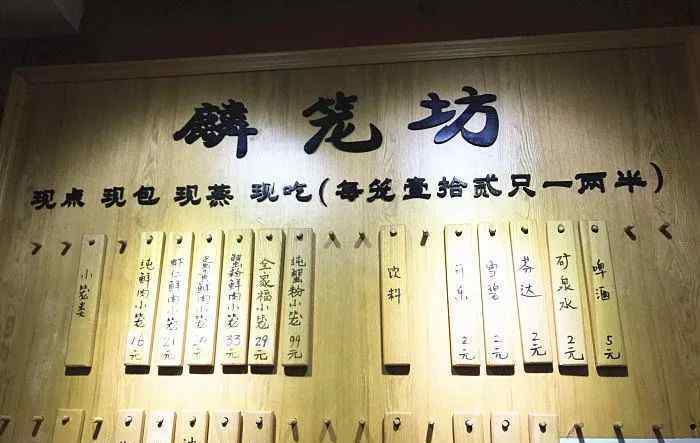 麟笼坊
现点 现包 现蒸 现吃(每笼壹拾贰只一两半)
小笼类
纯鲜肉小笼 16元
虾仁鲜肉小笼 21元
鲜肉小笼
蟹粉鲜肉小笼 33元
全家福小笼 29元
纯蟹粉小笼 99元
饮料
可乐 2元
雪碧 2元
芬达 2元
矿泉水 2元
啤酒 5元